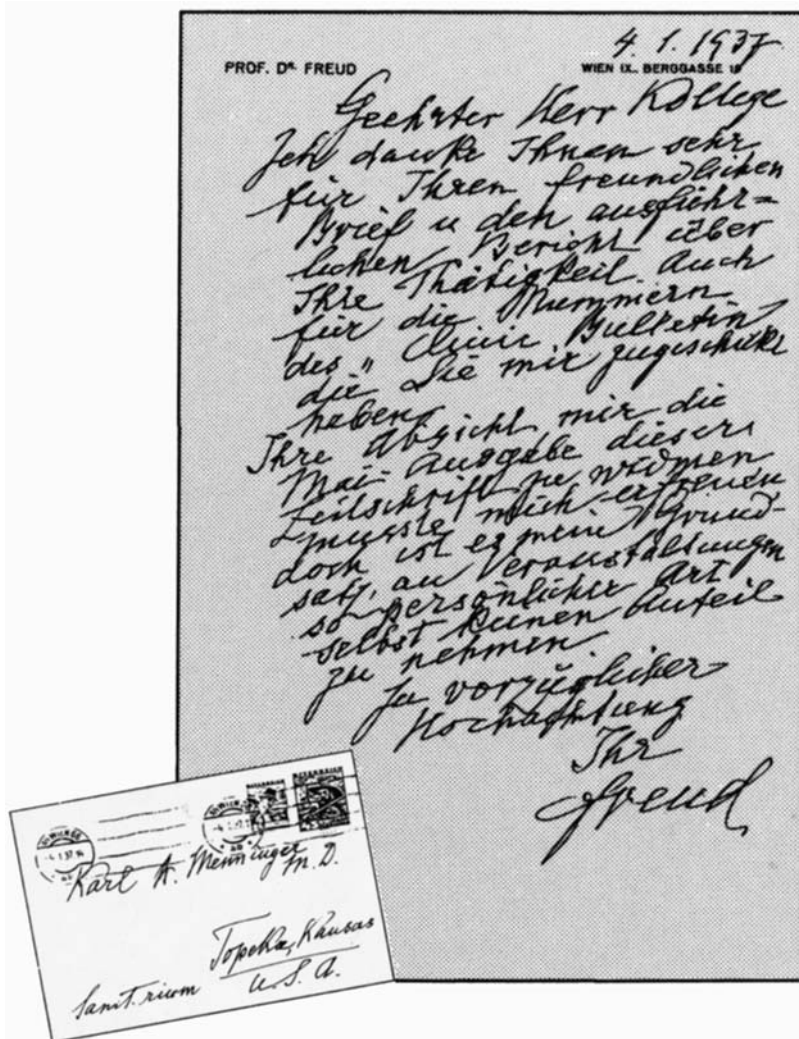 4. 1. 1937
PROF. DR. FREUD
WIEN IX., BERGGASSE 19
Geehrter Herr Kollege
Ich danke Ihnen sehr
für Ihren freundlichen
Brief u den ausführ=
lichen Bericht über
Ihre Thätigkeit. Auch
für die Nummern
des „Clinic Bulletin
die Sie mir zugeschickt
haben.
Ihre Absicht mir die
Mai-Ausgabe dieser
Zeitschrift zu widmen
musste mich erfreuen
doch ist es mein Grund-
satz, an Veranstaltungen
so persönlicher Art
selbst keinen Anteil
zu nehmen.
In vorzüglicher
Hochachtung
Ihr
Freud
Karl A. Menninger
M. D.
Topeka, Kansas
Sanit. rium
U. S. A.